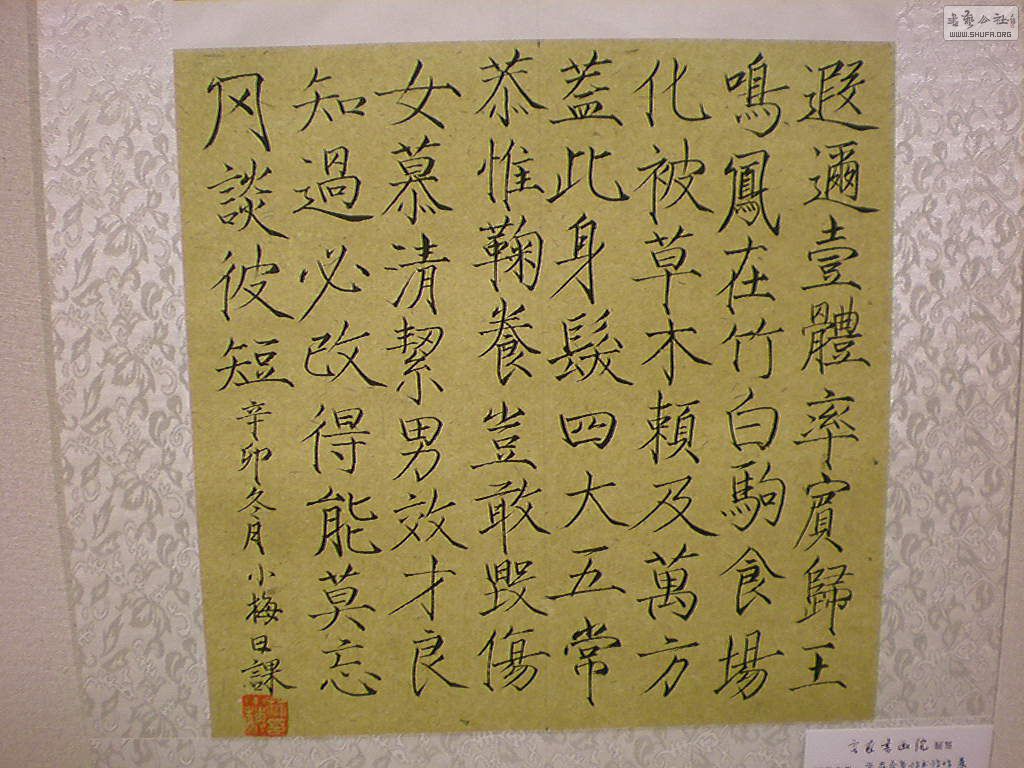 遐邇壹體率賓歸王
鳴鳳在竹白駒食場
化被草木賴及萬方
蓋此身髮四大五常
恭惟鞠養豈敢毀傷
女慕清絜男效才良
知過必改得能莫忘
罔談彼短
辛卯冬月小梅日課
書藝公社
WWW.SHUFA.ORG